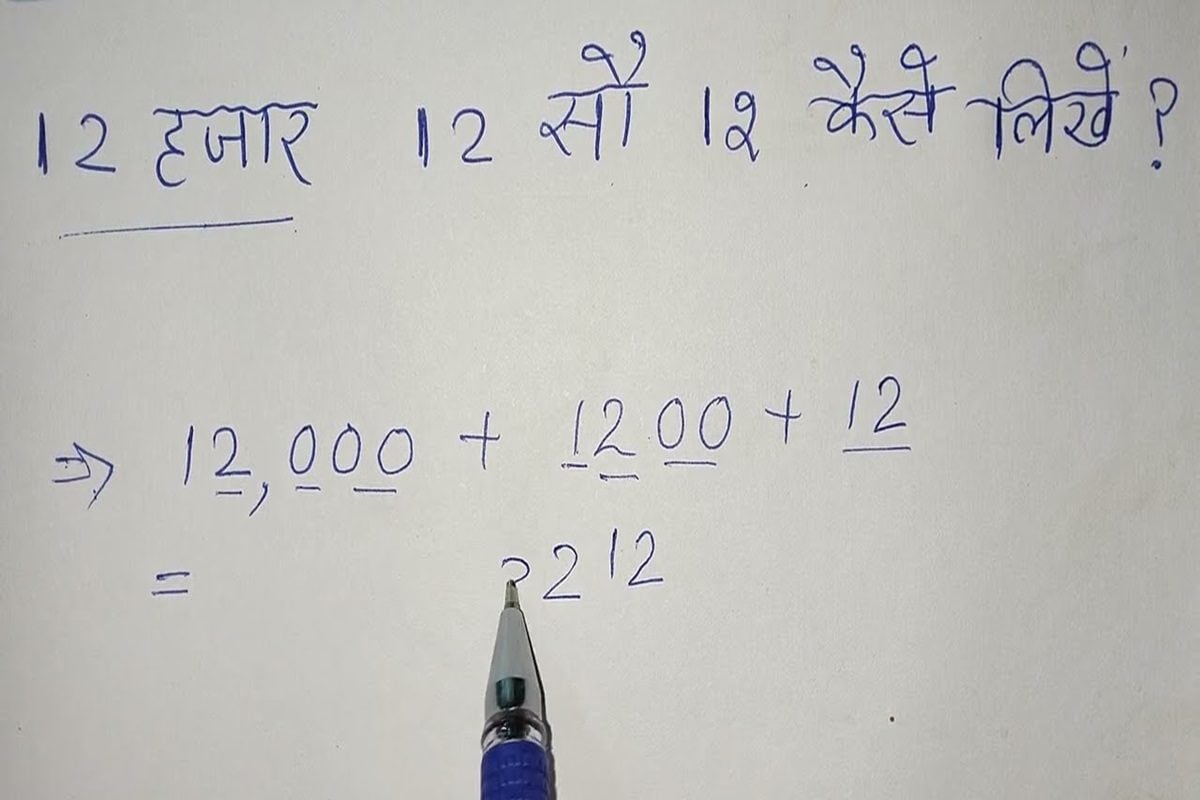 12 हजार 12 सौ 12 कैसे लिखें ?
⇒ 12,000 + 1200 + 12
= 212